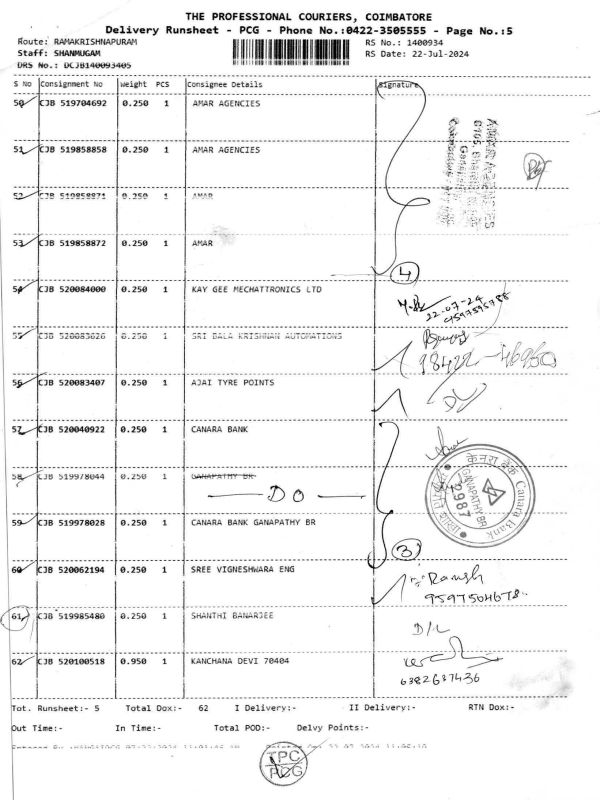 THE PROFESSIONAL COURIERS, COIMBATORE
Delivery Runsheet - PCG - Phone No.:0422-3505555 - Page No.:5
Route: RAMAKRISHNAPURAM RS No.: 1400934
Staff: SHANMUGAM RS Date: 22-Jul-2024
DRS No.: DCJB140093405
S No Consignment No Weight PCS Consignee Details Signature
50 CJB 519704692 0.250 1 AMAR AGENCIES
51 CJB 519858858 0.250 1 AMAR AGENCIES
52 CJB 519858871 0.250 1 AMAR
53 CJB 519858872 0.250 1 AMAR
4
54 CJB 520084000 0.250 1 KAY GEE MECHATTRONICS LTD
22-07-24
55 CJB 520083626 0.250 1 SRI BALA KRISHNAN AUTOMATIONS
98422-46960
56 CJB 520083407 0.250 1 AJAI TYRE POINTS
57 CJB 520040922 0.250 1 CANARA BANK
58 CJB 519978044 0.250 1 GANAPATHY BR
DO
केनरा बैंक Canara Bank
GANAPATHY BR
2987
59 CJB 519978028 0.250 1 CANARA BANK GANAPATHY BR
3
60 CJB 520062194 0.250 1 SREE VIGNESHWARA ENG
Ramesh
9597504678
61 CJB 519985480 0.250 1 SHANTHI BANARJEE
D/L
62 CJB 520100518 0.950 1 KANCHANA DEVI 70404
6382637436
Tot. Runsheet:- 5 Total Dox:- 62 I Delivery:- II Delivery:- RTN Dox:-
Out Time:- In Time:- Total POD:- Delvy Points:-
TPC
PCG